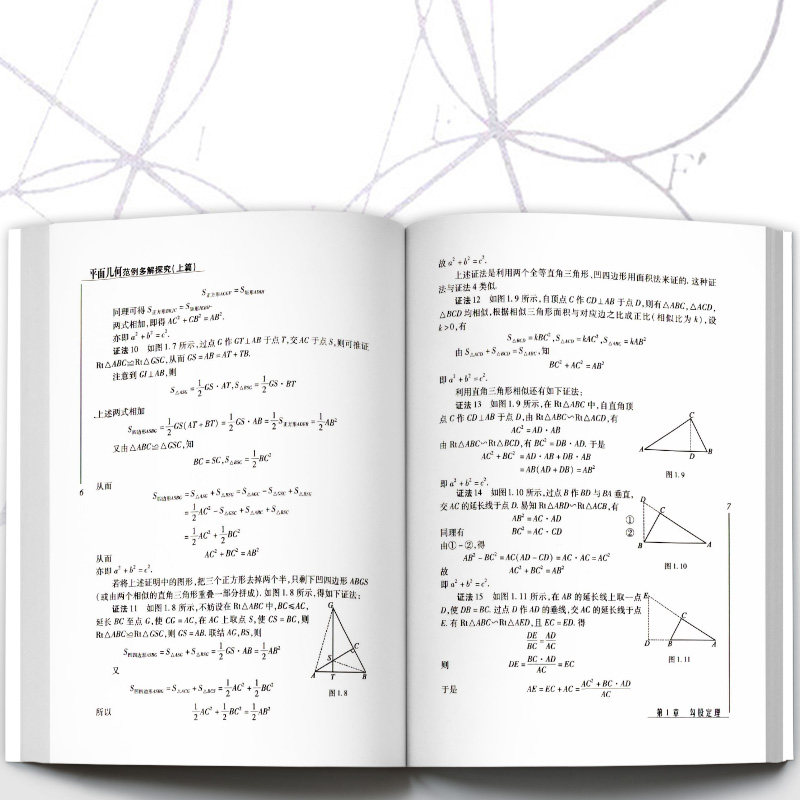 F'
平面几何范例多解探究(上篇)
S正方形ACGF = S矩形ADHN
同理可得 S正方形BKJC = S矩形BEHN.
两式相加,即得 AC² + CB² = AB².
亦即 a² + b² = c².
证法10 如图 1.7 所示,过点 G 作 GT⊥AB 于点 T,交 AC 于点 S,则可推证
Rt△ABC≌Rt△GSC,从而 GS = AB = AT + TB.
注意到 GT⊥AB,则
S△ASG = 1/2 GS · AT, S△BSG = 1/2 GS · BT
上述两式相加
S四边形ASBG = 1/2 GS(AT + BT) = 1/2 GS · AB = 1/2 S正方形ADEB = 1/2 AB²
又由△ABC≌△GSC,知
BC = SC, S△BSC = 1/2 BC²
6
从而
S四边形ASBG = S△ASG + S△BSG = S△ACG − S△GSC + S△BSG
= 1/2 AC² − S△GSC + S△GSC + S△BSC
= 1/2 AC² + 1/2 BC²
从而 AC² + BC² = AB²
亦即 a² + b² = c².
若将上述证明中的图形,把三个正方形去掉两个半,只剩下凹四边形 ABGS
(或由两个相似的直角三角形重叠一部分拼成). 如图 1.8 所示,得如下证法:
证法11 如图 1.8 所示,不妨设在 Rt△ABC 中,BC≤AC,
延长 BC 至点 G,使 CG = AC,在 AC 上取点 S,使 CS = BC,则
Rt△ABC≌Rt△GSC,则 GS = AB. 联结 AG,BS,则
S凹四边形ASBG = S△ASG + S△BSG = 1/2 GS · AB = 1/2 AB²
又
S凹四边形ASBG = S△ACG + S△BCS = 1/2 AC² + 1/2 BC²
所以 1/2 AC² + 1/2 BC² = 1/2 AB²
G
C
S
A T B
图 1.8
故 a² + b² = c².
上述证法是利用两个全等直角三角形,凹四边形用面积法来证的. 这种证
法与证法 4 类似.
证法12 如图 1.9 所示,自顶点 C 作 CD⊥AB 于点 D,则有△ABC,△ACD,
△BCD 均相似,根据相似三角形面积与对应边之比成正比(相似比为 k),设
k > 0,有
S△BCD = kBC², S△ACD = kAC², S△ABC = kAB²
由 S△ACD + S△BCD = S△ABC,知
BC² + AC² = AB²
即 a² + b² = c².
利用直角三角形相似还有如下证法:
证法13 如图 1.9 所示,在 Rt△ABC 中,自直角顶
点 C 作 CD⊥AB 于点 D,由 Rt△ABC∽Rt△ACD,有
AC² = AD · AB
由 Rt△ABC∽Rt△BCD,有 BC² = DB · AD. 于是
AC² + BC² = AD · AB + DB · AB
= AB(AD + DB) = AB²
即 a² + b² = c².
C
A D B
图 1.9
证法14 如图 1.10 所示,过点 B 作 BD 与 BA 垂直,
交 AC 的延长线于点 D. 易知 Rt△ABD∽Rt△ACB,有
AB² = AC · AD ①
同理有 BC² = AC · CD ②
由① − ②,得
AB² − BC² = AC(AD − CD) = AC · AC = AC²
故 AC² + BC² = AB²
即 a² + b² = c².
7
D
C
B A
图 1.10
证法15 如图 1.11 所示,在 AB 的延长线上取一点
D,使 DB = BC. 过点 D 作 AD 的垂线,交 AC 的延长线于点
E. 有 Rt△ABC∽Rt△AED,且 EC = ED. 得
DE/BC = AD/AC
则 DE = BC · AD/AC = EC
于是 AE = EC + AC = AC² + BC · AD/AC
E
C
D B A
图 1.11
第 1 章 勾股定理